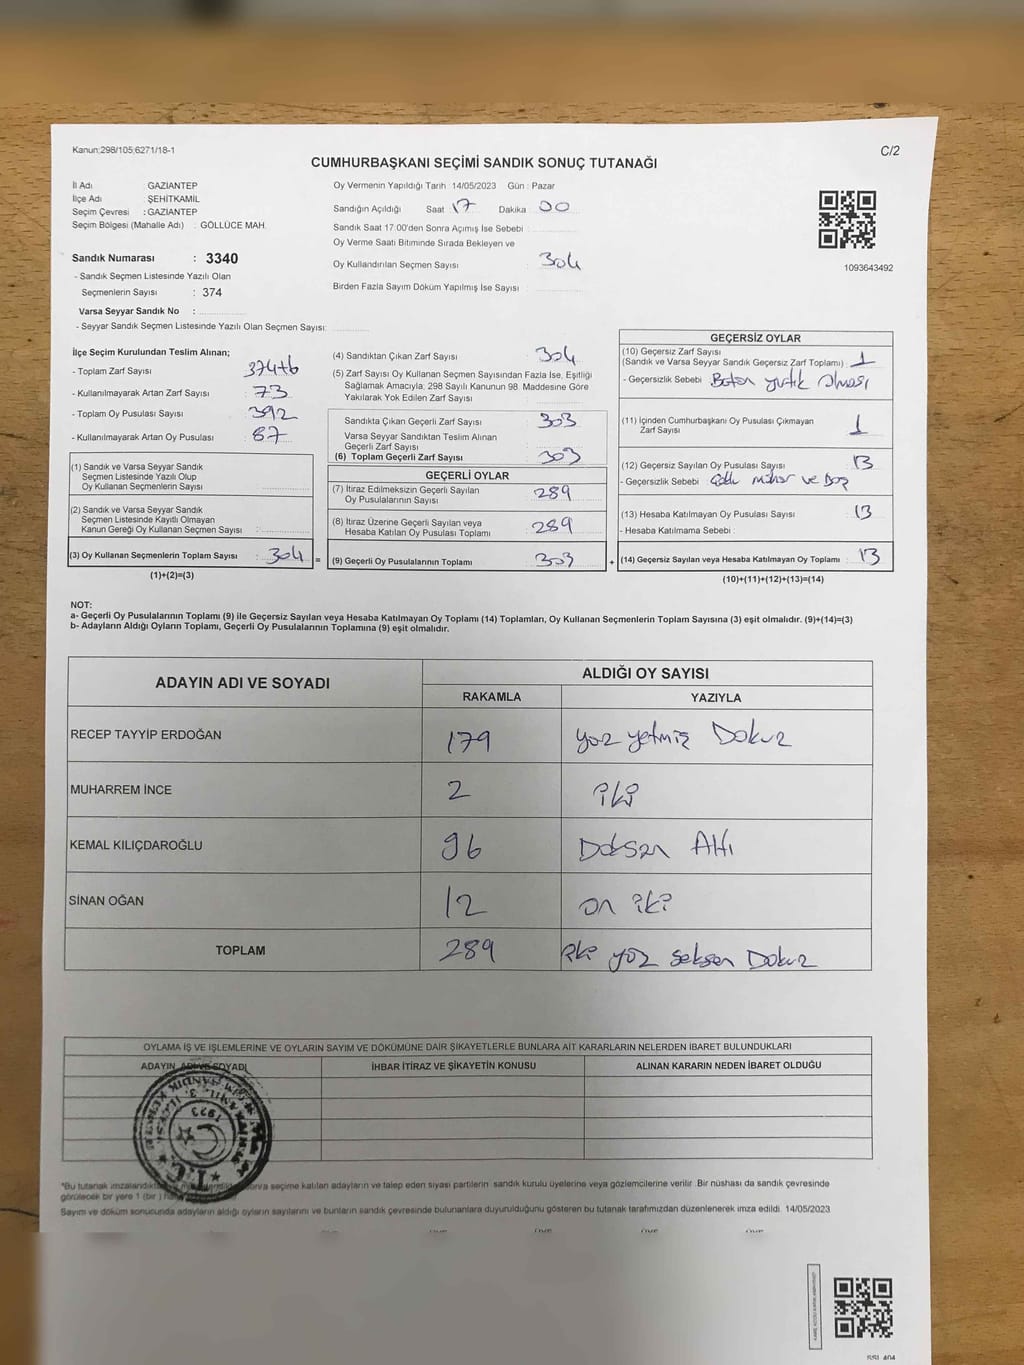 Kanun;298/105;6271/18-1
C/2
CUMHURBAŞKANI SEÇİMİ SANDIK SONUÇ TUTANAĞI
İl Adı : GAZIANTEP
İlçe Adı ŞEHİTKAMİL
Seçim Çevresi : GAZIANTEP
Seçim Bölgesi (Mahalle Adı) : GÖLLÜCE MAH.
Sandık Numarası : 3340
- Sandık Seçmen Listesinde Yazılı Olan
Seçmenlerin Sayısı : 374
Varsa Seyyar Sandık No :
- Seyyar Sandık Seçmen Listesinde Yazılı Olan Seçmen Sayısı:
Oy Vermenin Yapıldığı Tarih : 14/05/2023 Gün : Pazar
Sandığın Açıldığı Saat 17 Dakika 00
Sandık Saat 17:00'den Sonra Açımış İse Sebebi :
Oy Verme Saati Bitiminde Sırada Bekleyen ve
Oy Kullandırılan Seçmen Sayısı : 304
Birden Fazla Sayım Döküm Yapılmış İse Sayısı :
1093643492
İlçe Seçim Kurulundan Teslim Alınan;
- Toplam Zarf Sayısı 374+6
- Kullanılmayarak Artan Zarf Sayısı : 73
- Toplam Oy Pusulası Sayısı : 392
- Kullanılmayarak Artan Oy Pusulası : 87
(1) Sandık ve Varsa Seyyar Sandık
Seçmen Listesinde Yazılı Olup
Oy Kullanan Seçmenlerin Sayısı :
(2) Sandık ve Varsa Seyyar Sandık
Seçmen Listesinde Kayıtlı Olmayan
Kanun Gereği Oy Kullanan Seçmen Sayısı :
(3) Oy Kullanan Seçmenlerin Toplam Sayısı : 304 =
(1)+(2)=(3)
(4) Sandıktan Çıkan Zarf Sayısı : 304
(5) Zarf Sayısı Oy Kullanan Seçmen Sayısından Fazla İse, Eşitliği
Sağlamak Amacıyla; 298 Sayılı Kanunun 98. Maddesine Göre
Yakılarak Yok Edilen Zarf Sayısı :
Sandıkta Çıkan Geçerli Zarf Sayısı : 303
Varsa Seyyar Sandıktan Teslim Alınan
Geçerli Zarf Sayısı :
(6) Toplam Geçerli Zarf Sayısı : 303
GEÇERLİ OYLAR
(7) İtiraz Edilmeksizin Geçerli Sayılan
Oy Pusulalarının Sayısı : 289
(8) İtiraz Üzerine Geçerli Sayılan veya
Hesaba Katılan Oy Pusulası Toplamı : 289
(9) Geçerli Oy Pusulalarının Toplamı : 303 +
GEÇERSİZ OYLAR
(10) Geçersiz Zarf Sayısı
(Sandık ve Varsa Seyyar Sandık Geçersiz Zarf Toplamı) : 1
- Geçersizlik Sebebi : yırtık olması
(11) İçinden Cumhurbaşkanı Oy Pusulası Çıkmayan
Zarf Sayısı : 1
(12) Geçersiz Sayılan Oy Pusulası Sayısı : 13
- Geçersizlik Sebebi : mühür ve Boş
(13) Hesaba Katılmayan Oy Pusulası Sayısı : 13
- Hesaba Katılmama Sebebi :
(14) Geçersiz Sayılan veya Hesaba Katılmayan Oy Toplamı : 13
(10)+(11)+(12)+(13)=(14)
NOT:
a- Geçerli Oy Pusulalarının Toplamı (9) ile Geçersiz Sayılan veya Hesaba Katılmayan Oy Toplamı (14) Toplamları, Oy Kullanan Seçmenlerin Toplam Sayısına (3) eşit olmalıdır. (9)+(14)=(3)
b- Adayların Aldığı Oyların Toplamı, Geçerli Oy Pusulalarının Toplamına (9) eşit olmalıdır.
ADAYIN ADI VE SOYADI ALDIĞI OY SAYISI
RAKAMLA YAZIYLA
RECEP TAYYİP ERDOĞAN 179 yüz yetmiş Dokuz
MUHARREM İNCE 2 iki
KEMAL KILIÇDAROĞLU 96 Doksan Altı
SİNAN OĞAN 12 on iki
TOPLAM 289 iki yüz seksen Dokuz
OYLAMA İŞ VE İŞLEMLERİNE VE OYLARIN SAYIM VE DÖKÜMÜNE DAİR ŞİKAYETLERLE BUNLARA AİT KARARLARIN NELERDEN İBARET BULUNDUKLARI
ADAYIN ADI VE SOYADI İHBAR İTİRAZ VE ŞİKAYETİN KONUSU ALINAN KARARIN NEDEN İBARET OLDUĞU
T.C.
1923
*Bu tutanak sonra seçime katılan adayların ve talep eden siyasi partilerin sandık kurulu üyelerine veya gözlemcilerine verilir. Bir nüshası da sandık çevresinde
görülecek bir yere 1 (bir)
Sayım ve döküm sonucunda adayların aldığı oyların sayılarını ve bunların sandık çevresinde bulunanlara duyurulduğunu gösteren bu tutanak tarafımızdan düzenlenerek imza edildi. 14/05/2023